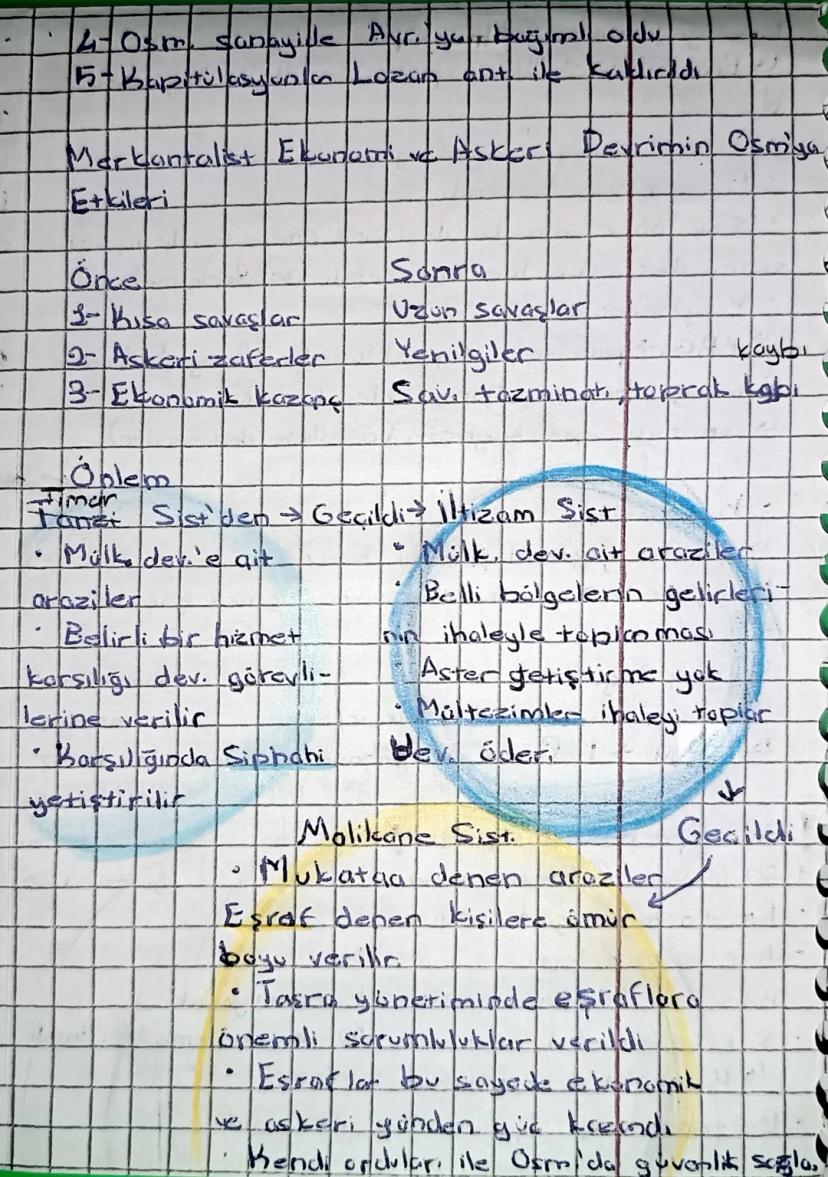 4- Osm. sanayide Avr.'ya bağımlı oldu
5- Kapitülasyonlar Lozan ant. ile kaldırıldı
Merkantalist Ekonomi ve Askeri Devrimin Osm'ya
Etkileri
Önce
Sonra
1- Kısa savaşlar
Uzun savaşlar
2- Askeri zaferler
Yenilgiler
kaybı
3- Ekonomik kazanç
Sav. tazminatı, toprak kaybı
Önlem
Tımar
Sist'den → Geçildi → İltizam Sist
• Mülk. dev.'e ait
araziler
• Belirli bir hizmet
karşılığı dev. görevli-
lerine verilir
• Karşılığında Sipahi
yetiştirilir
• Mülk. dev. ait araziler
• Belli bölgelerin gelirleri-
nin ihaleyle toplanması
• Asker yetiştirme yok
• Mültezimler ihaleyi toplar
Dev. öder.
↓
Geçildi
Malikane Sist.
• Mukataa denen araziler
Eşraf denen kişilere ömür
boyu verilir.
• Taşra yönetiminde eşraflara
önemli sorumluluklar verildi
• Eşraflar bu sayede ekonomik
ve askeri yönden güç kazandı
• Kendi orduları ile Osm'da güvenlik sağla.